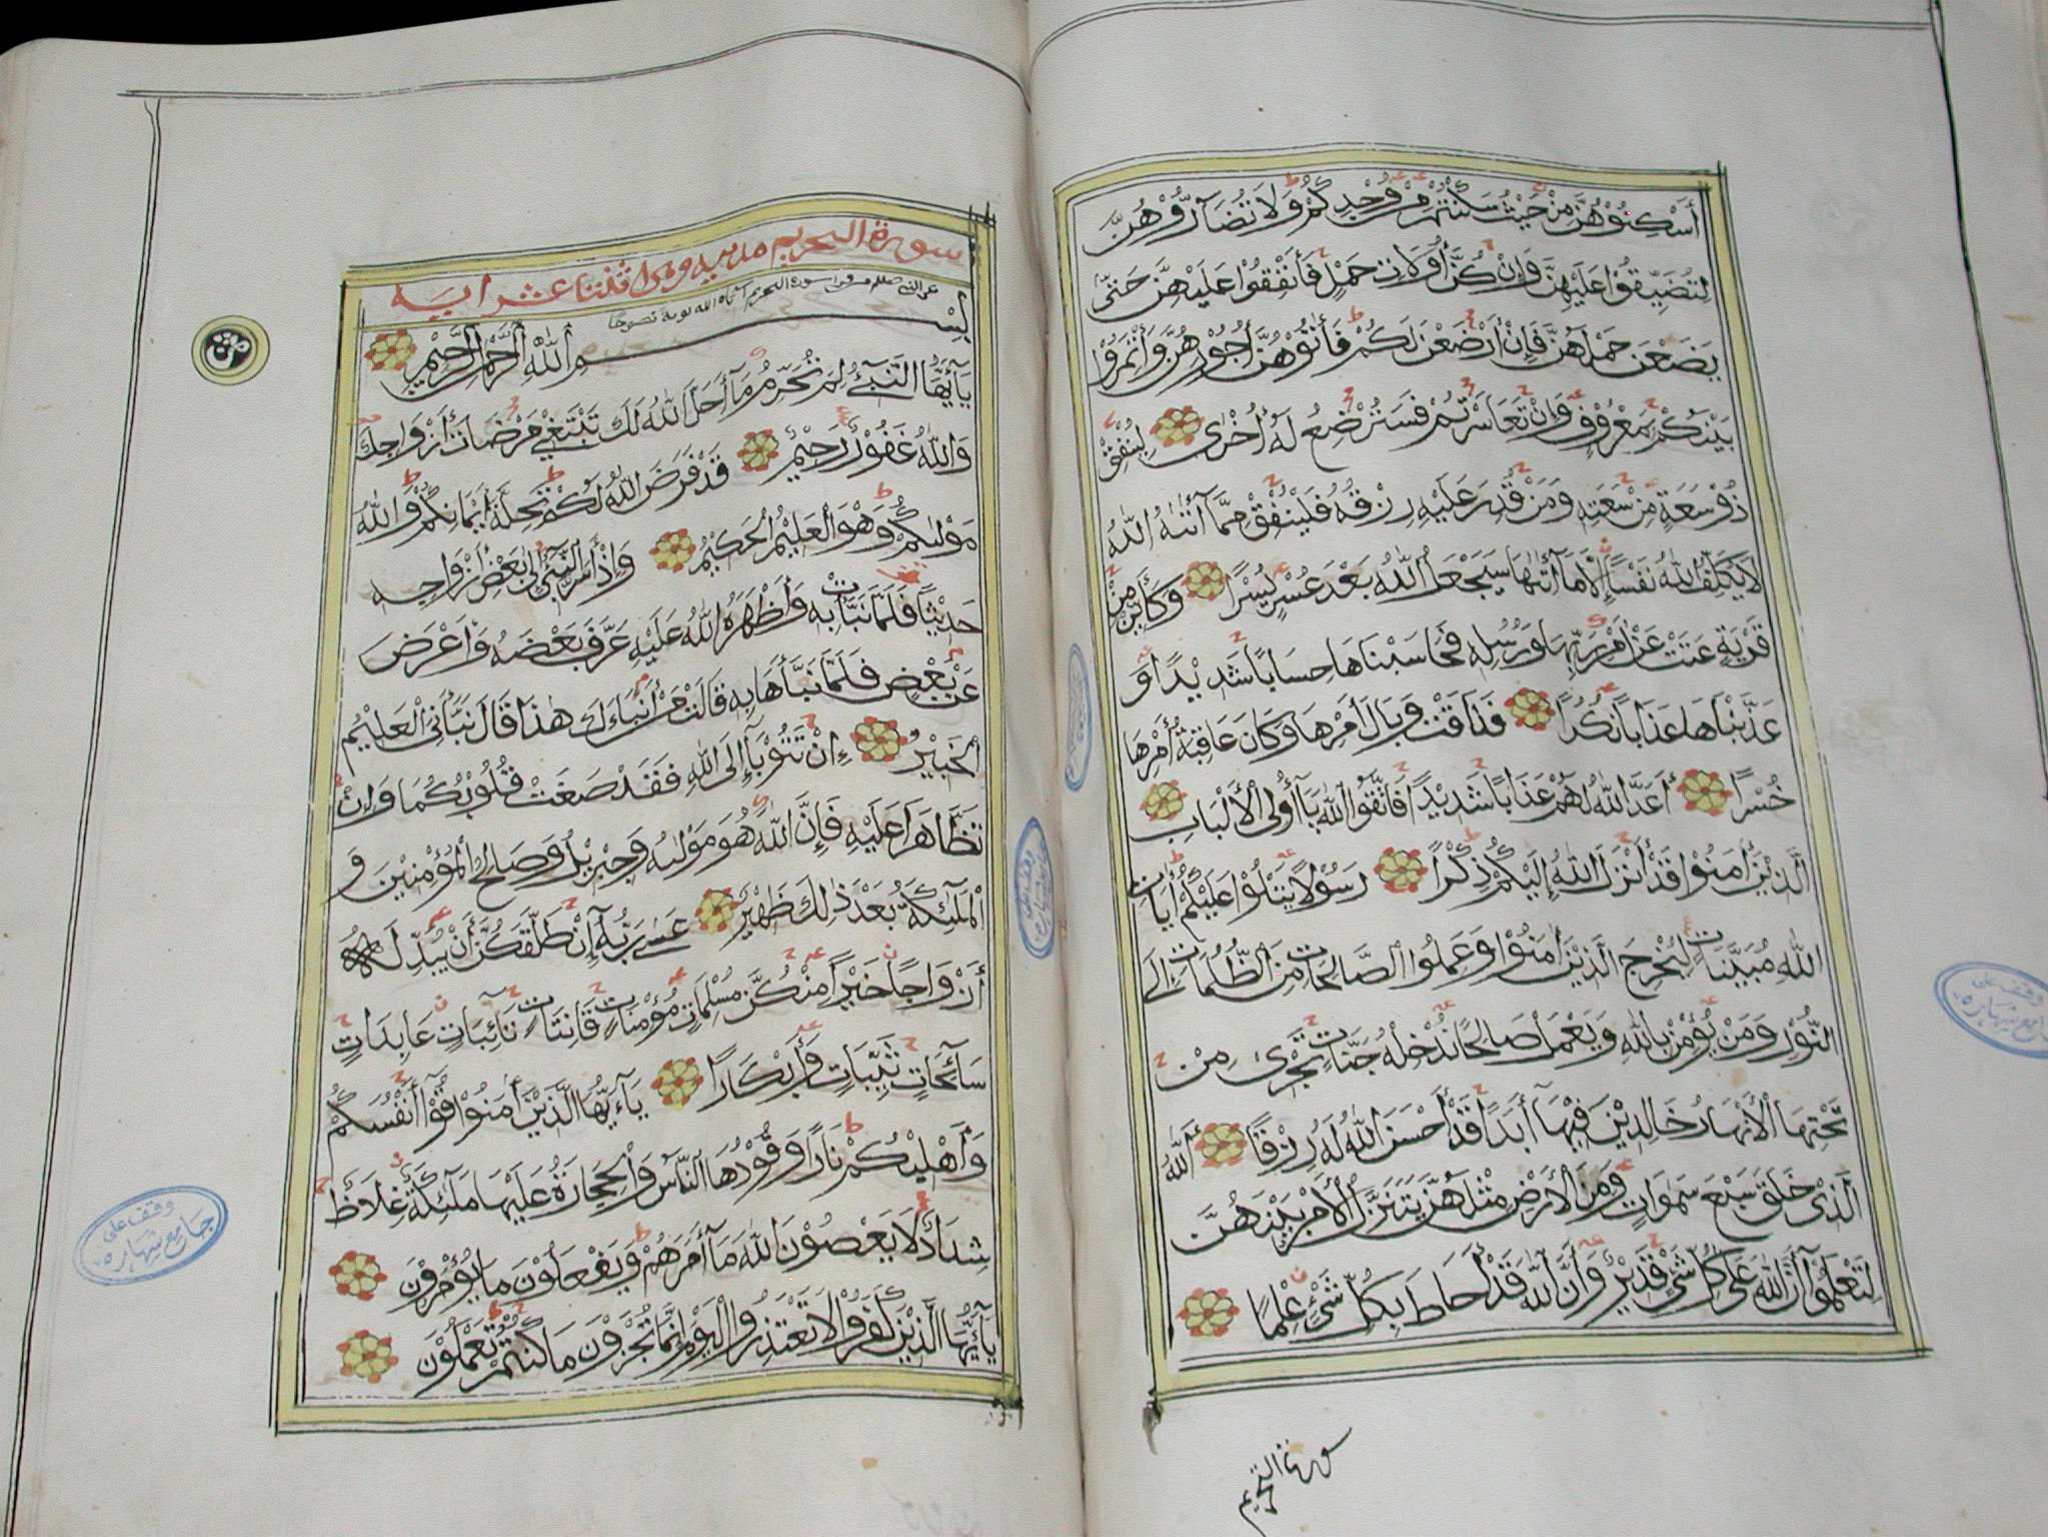 أَسْكِنُوْهُنَّ مِنْ حَيْثُ سَكَنْتُمْ مِنْ وُجْدِكُمْ وَلَا تُضَآرُّوْهُنَّ
لِتُضَيِّقُوْا عَلَيْهِنَّ وَإِنْ كُنَّ أُولَاتِ حَمْلٍ فَأَنْفِقُوْا عَلَيْهِنَّ حَتّٰى
يَضَعْنَ حَمْلَهُنَّ فَإِنْ أَرْضَعْنَ لَكُمْ فَأٰتُوْهُنَّ أُجُوْرَهُنَّ وَأْتَمِرُوْا
بَيْنَكُمْ بِمَعْرُوْفٍ وَإِنْ تَعَاسَرْتُمْ فَسَتُرْضِعُ لَهُ أُخْرٰى لِيُنْفِقْ
ذُوْ سَعَةٍ مِنْ سَعَتِهِ وَمَنْ قُدِرَ عَلَيْهِ رِزْقُهُ فَلْيُنْفِقْ مِمَّا آتٰىهُ اللّٰهُ
لَا يُكَلِّفُ اللّٰهُ نَفْسًا إِلَّا مَا آتٰىهَا سَيَجْعَلُ اللّٰهُ بَعْدَ عُسْرٍ يُسْرًا وَكَأَيِّنْ مِنْ
قَرْيَةٍ عَتَتْ عَنْ أَمْرِ رَبِّهَا وَرُسُلِهِ فَحَاسَبْنَاهَا حِسَابًا شَدِيْدًا وَ
عَذَّبْنَاهَا عَذَابًا نُكُرًا فَذَاقَتْ وَبَالَ أَمْرِهَا وَكَانَ عَاقِبَةُ أَمْرِهَا
خُسْرًا أَعَدَّ اللّٰهُ لَهُمْ عَذَابًا شَدِيْدًا فَاتَّقُوا اللّٰهَ يَا أُولِي الْأَلْبَابِ
الَّذِيْنَ أٰمَنُوْا قَدْ أَنْزَلَ اللّٰهُ إِلَيْكُمْ ذِكْرًا رَسُوْلًا يَتْلُوْا عَلَيْكُمْ أٰيَاتِ
اللّٰهِ مُبَيِّنَاتٍ لِيُخْرِجَ الَّذِيْنَ أٰمَنُوْا وَعَمِلُوا الصَّالِحَاتِ مِنَ الظُّلُمَاتِ إِلَى
النُّوْرِ وَمَنْ يُؤْمِنْ بِاللّٰهِ وَيَعْمَلْ صَالِحًا نُدْخِلْهُ جَنَّاتٍ تَجْرِيْ مِنْ
تَحْتِهَا الْأَنْهَارُ خَالِدِيْنَ فِيْهَا أَبَدًا قَدْ أَحْسَنَ اللّٰهُ لَهُ رِزْقًا اَللّٰهُ
الَّذِيْ خَلَقَ سَبْعَ سَمٰوَاتٍ وَمِنَ الْأَرْضِ مِثْلَهُنَّ يَتَنَزَّلُ الْأَمْرُ بَيْنَهُنَّ
لِتَعْلَمُوْآ أَنَّ اللّٰهَ عَلٰى كُلِّ شَيْءٍ قَدِيْرٌ وَأَنَّ اللّٰهَ قَدْ أَحَاطَ بِكُلِّ شَيْءٍ عِلْمًا
سورة التحريم
وقف على
جامع شهاره
سورة التحريم مدنيه وهى اثنتا عشر ايه
عن النبي صلعم من قرا سورة التحريم آتاه الله توبة نصوحا
بِسْمِ اللّٰهِ الرَّحْمٰنِ الرَّحِيْمِ
يَآأَيُّهَا النَّبِيُّ لِمَ تُحَرِّمُ مَآ أَحَلَّ اللّٰهُ لَكَ تَبْتَغِيْ مَرْضَاتَ أَزْوَاجِكَ
وَاللّٰهُ غَفُوْرٌ رَحِيْمٌ قَدْ فَرَضَ اللّٰهُ لَكُمْ تَحِلَّةَ أَيْمَانِكُمْ وَاللّٰهُ
مَوْلٰىكُمْ وَهُوَ الْعَلِيْمُ الْحَكِيْمُ وَإِذْ أَسَرَّ النَّبِيُّ إِلٰى بَعْضِ أَزْوَاجِهِ
حَدِيْثًا فَلَمَّا نَبَّأَتْ بِهِ وَأَظْهَرَهُ اللّٰهُ عَلَيْهِ عَرَّفَ بَعْضَهُ وَأَعْرَضَ
عَنْ بَعْضٍ فَلَمَّا نَبَّأَهَا بِهِ قَالَتْ مَنْ أَنْبَاَءَكَ هٰذَا قَالَ نَبَّأَنِيَ الْعَلِيْمُ
الْخَبِيْرُ إِنْ تَتُوْبَآ إِلَى اللّٰهِ فَقَدْ صَغَتْ قُلُوْبُكُمَا وَإِنْ
تَظَّاهَرَا عَلَيْهِ فَإِنَّ اللّٰهَ هُوَ مَوْلٰىهُ وَجِبْرِيْلُ وَصَالِحُ الْمُؤْمِنِيْنَ وَ
الْمَلٰٓئِكَةُ بَعْدَ ذٰلِكَ ظَهِيْرٌ عَسٰى رَبُّهُ إِنْ طَلَّقَكُنَّ أَنْ يُبَدِّلَهُ
أَزْوَاجًا خَيْرًا مِنْكُنَّ مُسْلِمَاتٍ مُؤْمِنَاتٍ قَانِتَاتٍ تَآئِبَاتٍ عَابِدَاتٍ
سَآئِحَاتٍ ثَيِّبَاتٍ وَأَبْكَارًا يَآأَيُّهَا الَّذِيْنَ أٰمَنُوْا قُوْآ أَنْفُسَكُمْ
وَأَهْلِيْكُمْ نَارًا وَقُوْدُهَا النَّاسُ وَالْحِجَارَةُ عَلَيْهَا مَلٰٓئِكَةٌ غِلَاظٌ
شِدَادٌ لَا يَعْصُوْنَ اللّٰهَ مَآ أَمَرَهُمْ وَيَفْعَلُوْنَ مَا يُؤْمَرُوْنَ
يَآأَيُّهَا الَّذِيْنَ كَفَرُوْا لَا تَعْتَذِرُوا الْيَوْمَ إِنَّمَا تُجْزَوْنَ مَا كُنْتُمْ تَعْمَلُوْنَ
وقف على
جامع شهاره